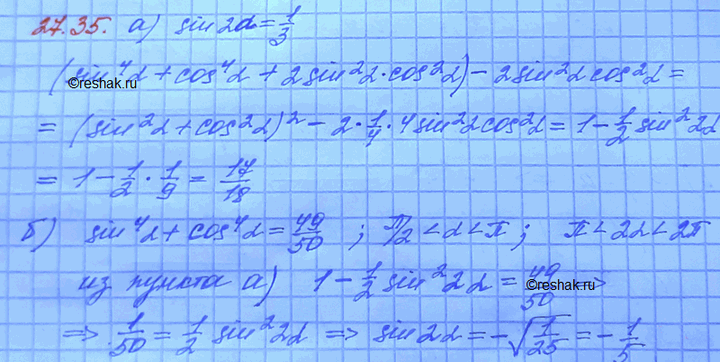 27.35. а) sin 2α = 1/3
(sin⁴α + cos⁴α + 2sin²α·cos²α) − 2sin²α cos²α =
= (sin²α + cos²α)² − 2·1/4·4sin²α cos²α = 1 − 1/2 sin²2α
= 1 − 1/2 · 1/9 = 17/18
б) sin⁴α + cos⁴α = 49/50 ; π/2 < α < π ; π < 2α < 2π
из пункта а) 1 − 1/2 sin²2α = 49/50 ⇒
⇒ 1/50 = 1/2 sin²2α ⇒ sin 2α = −√(1/25) = −1/5
©reshak.ru
©reshak.ru